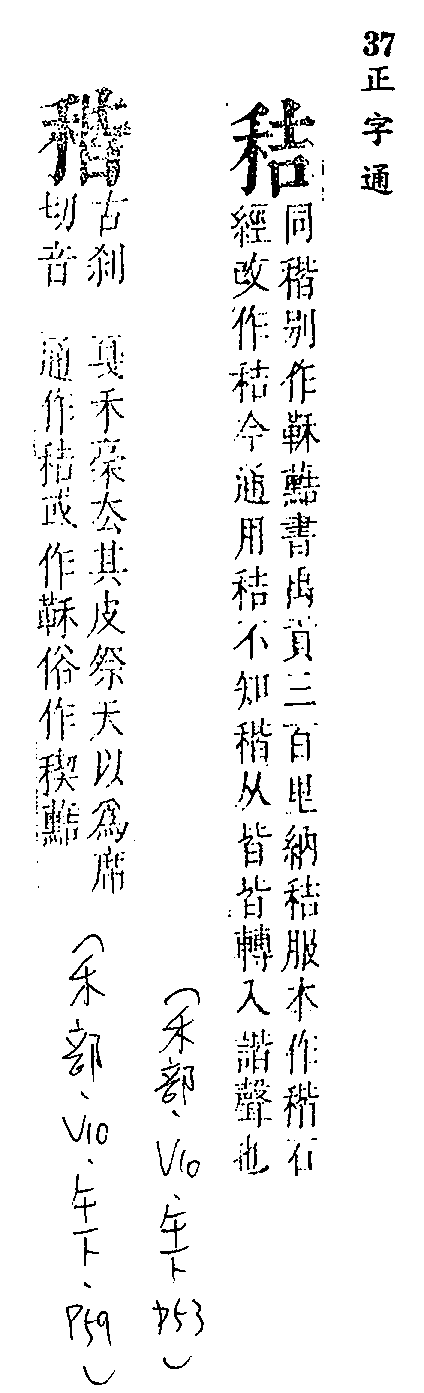 37正字通
秸
同稭別作䅥𪍑書禹貢三百里納秸服本作稭石
經改作秸今通用秸不知稭从皆皆轉入諧聲也
(禾部、V10、午下 P53)
稭
古刹
切音
戛禾稾去其皮祭天以為席
通作秸或作䅥俗作稧
(禾部、V10、午下、P59)